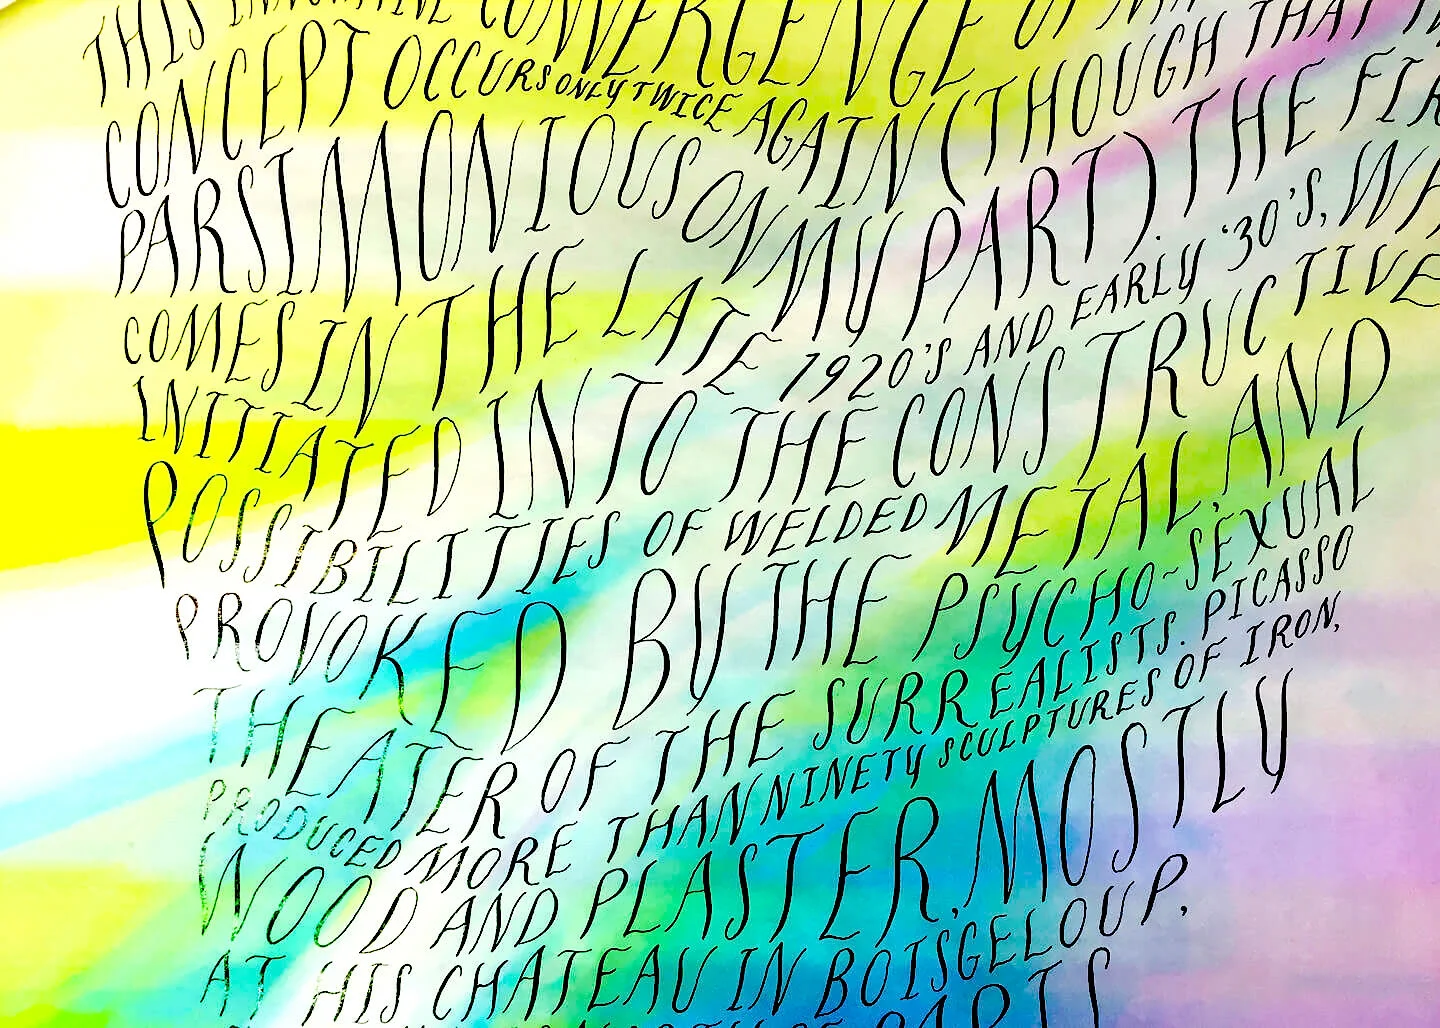 THIS INNOVATIVE CONVERGENCE OF
CONCEPT OCCURS ONLY TWICE AGAIN (THOUGH THAT IS
PARSIMONIOUS ON MY PART). THE
COMES IN THE LATE 1920'S AND EARLY '30'S,
INITIATED INTO THE CONSTRUCTIVE
POSSIBILITIES OF WELDED METAL, AND
PROVOKED BY THE PSYCHO-SEXUAL
THEATER OF THE SURREALISTS. PICASSO
PRODUCED MORE THAN NINETY SCULPTURES OF IRON,
WOOD AND PLASTER, MOSTLY
AT HIS CHATEAU IN BOISGELOUP,